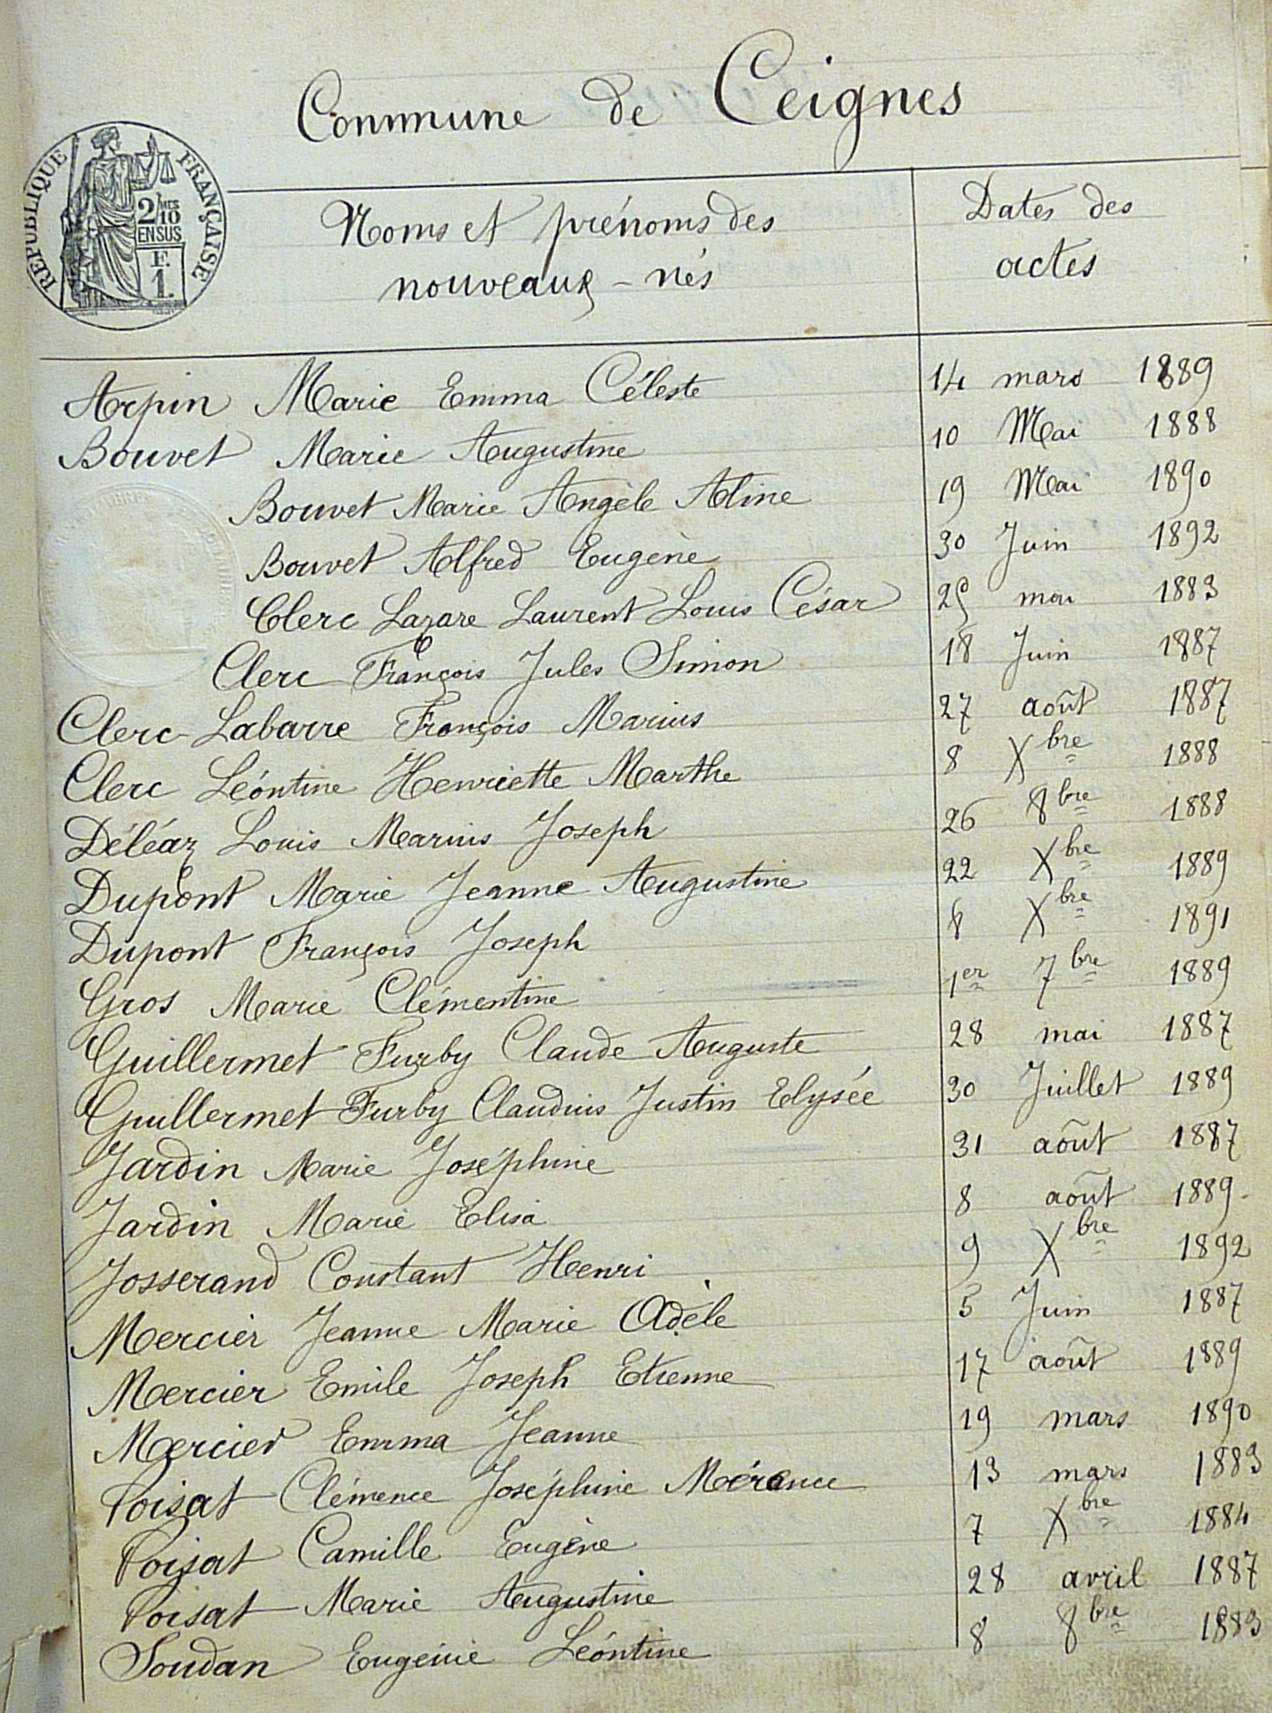 Commune de Ceignes
RÉPUBLIQUE FRANÇAISE
2/10
EN SUS
F.
1.
Noms et prénoms des
nouveaux - nés
Dates des
actes
Arpin Marie Emma Céleste 14 mars 1889
Bouvet Marie Augustine 10 Mai 1888
Bouvet Marie Angèle Aline 19 Mai 1890
Bouvet Alfred Eugène 30 Juin 1892
Clerc Lazare Laurent Louis César 25 mai 1883
Clerc François Jules Simon 18 Juin 1887
Clerc-Labarre François Marius 27 août 1887
Clerc Léontine Henriette Marthe 8 Xbre 1888
Déléaz Louis Marius Joseph 26 8bre 1888
Dupont Marie Jeanne Augustine 22 Xbre 1889
Dupont François Joseph 8 Xbre 1891
Gros Marie Clémentine 1er 7bre 1889
Guillermet Furby Claude Auguste 28 mai 1887
Guillermet Furby Claudius Justin Elysée 30 Juillet 1889
Jardin Marie Joséphine 31 août 1887
Jardin Marie Elisa 8 août 1889
Josserand Constant Henri 9 Xbre 1892
Mercier Jeanne Marie Adèle 5 Juin 1887
Mercier Emile Joseph Etienne 17 août 1889
Mercier Emma Jeanne 19 mars 1890
Poisat Clémence Joséphine 13 mars 1883
Poisat Camille Eugène 7 Xbre 1884
Poisat Marie Augustine 28 avril 1887
Soudan Eugénie Léontine 8 8bre 1883